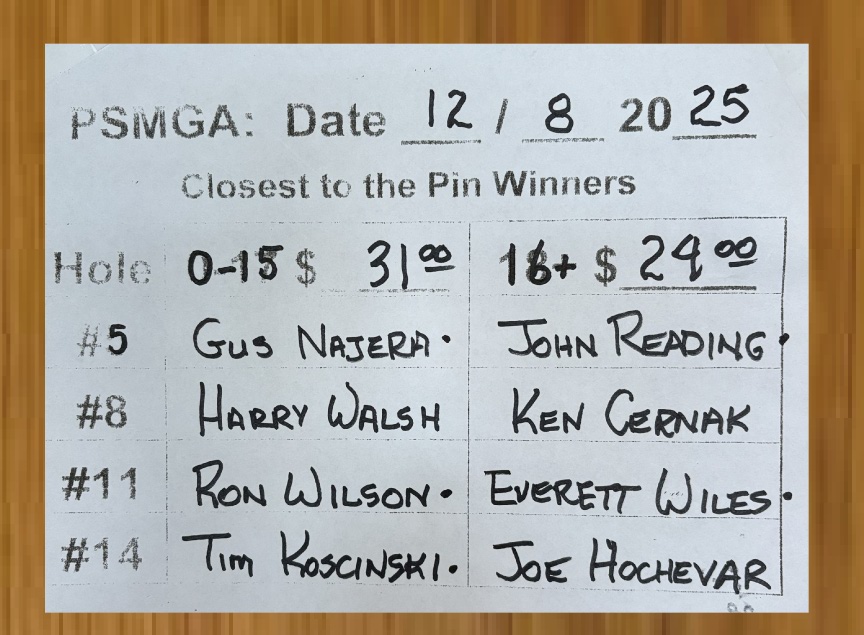 PSMGA: Date 12 / 8 20 25
Closest to the Pin Winners
Hole 0-15 $ 31 00 16+ $ 24 00
#5 GUS NAJERA. JOHN READING.
#8 HARRY WALSH KEN CERNAK
#11 RON WILSON. EVERETT WILES.
#14 TIM KOSCINSKI. JOE HOCHEVAR